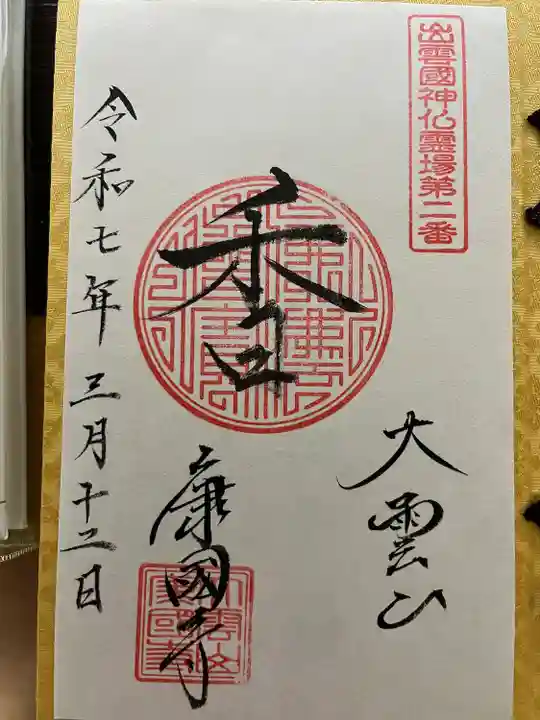 出雲國神仏霊場第二番
大雲山
香
康國寺
令和七年三月十二日